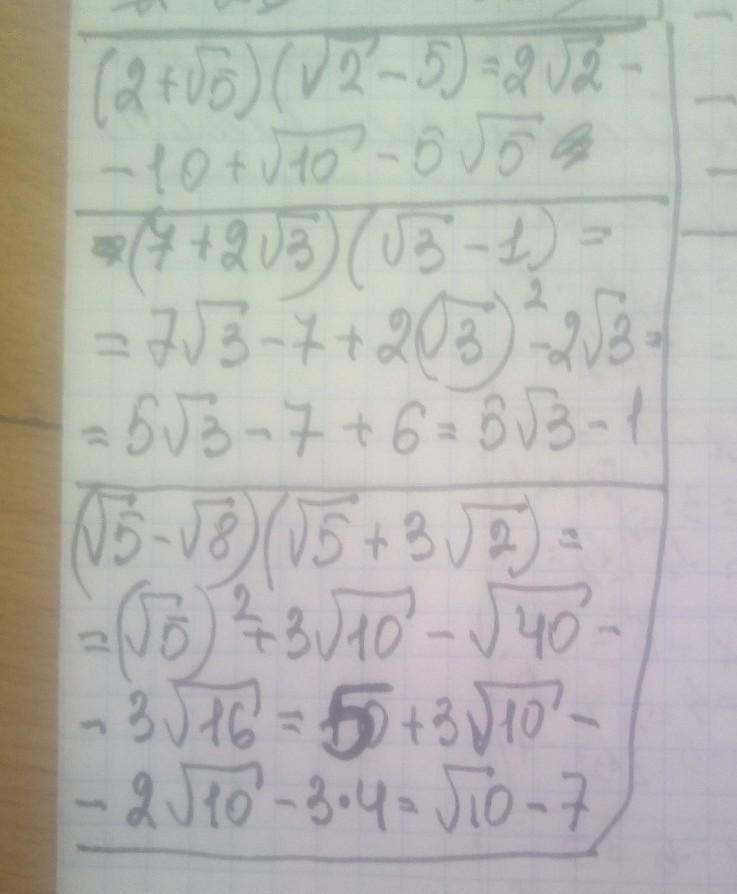 (2+√5)(√2-5)=2√2-
-10+√10-5√5
(7+2√3)(√3-1)=
=7√3-7+2(√3)²-2√3=
=5√3-7+6=5√3-1
(√5-√8)(√5+3√2)=
=(√5)²+3√10-√40-
-3√16=5+3√10-
-2√10-3·4=√10-7